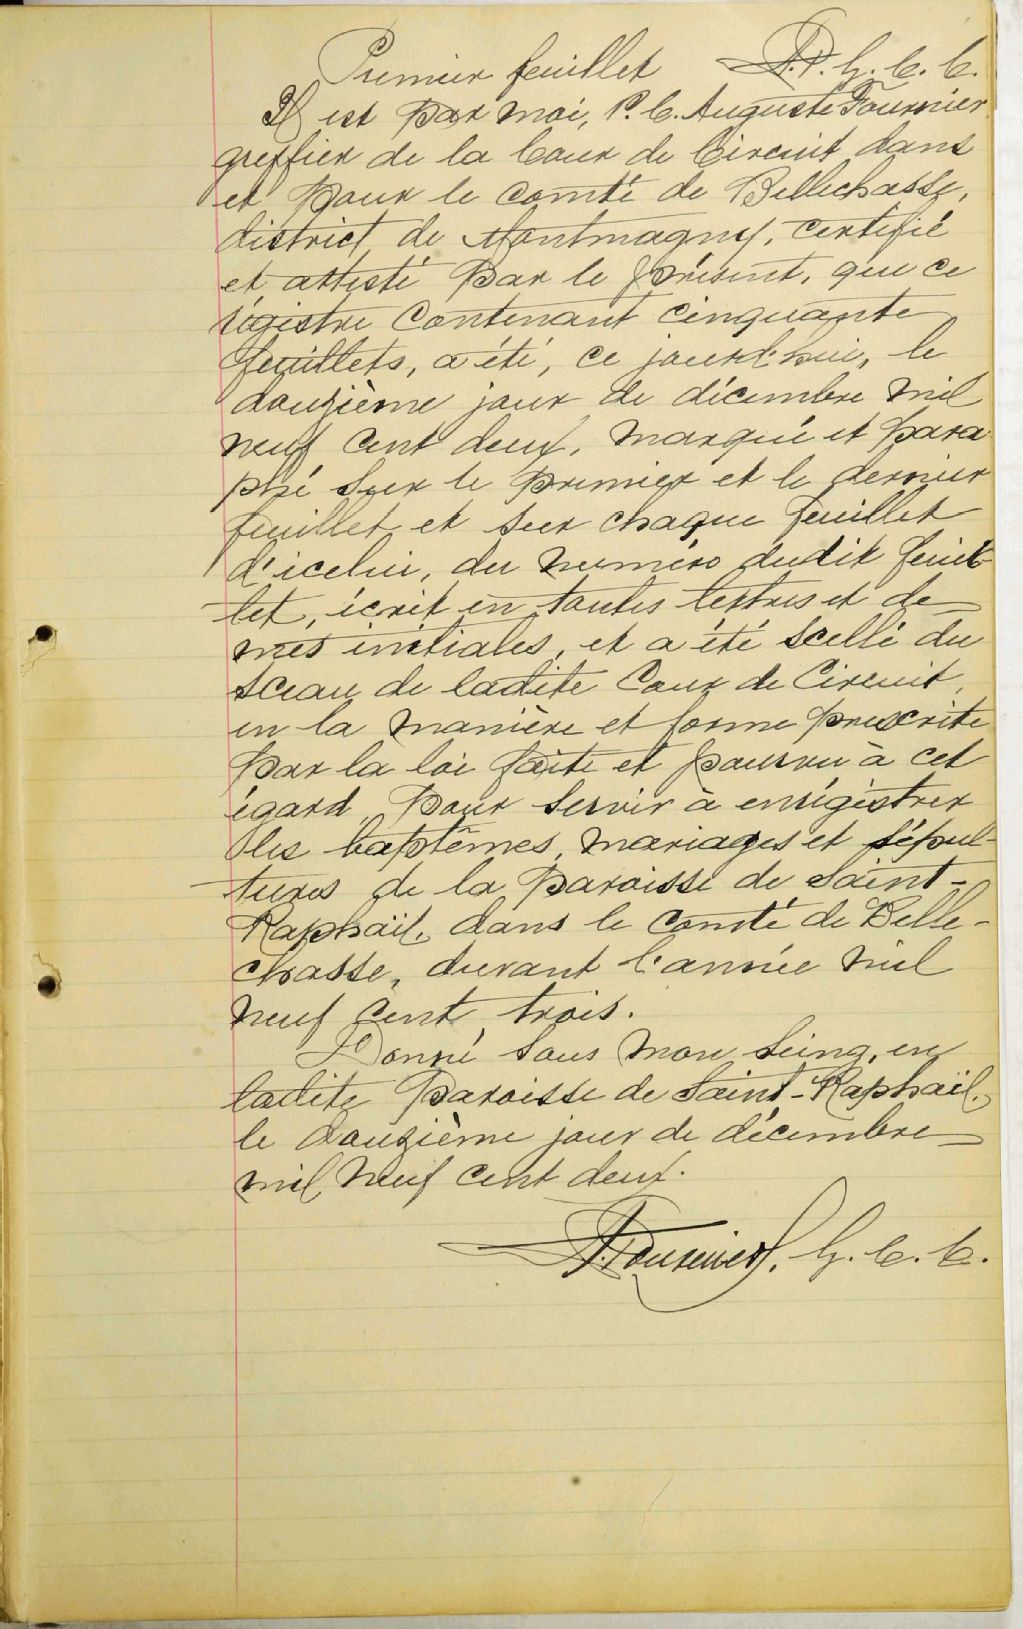 Premier feuillet A.F. G. C. C.
Il est par moi, P. C. Auguste Fournier
greffier de la Cour de Circuit dans
et pour le comté de Bellechasse,
district de Montmagny, certifié
et attesté par le présent, que ce
régistre contenant cinquante
feuillets, a été, ce jourd'hui, le
douzième jour de décembre mil
neuf cent deux, marqué et para
phé sur le premier et le dernier
feuillet et sur chaque feuillet
d'icelui, du numéro dudit feuil-
let, écrit en toutes lettres et de
mes initiales, et a été scellé du
sceau de ladite Cour de Circuit,
en la manière et forme prescrite
par la loi faite et pourvu à cet
égard, pour servir à enrégistrer
les baptêmes, mariages et sépul-
tures de la paroisse de Saint-
Raphaël, dans le comté de Belle-
chasse, durant l'année mil
neuf cent trois.
Donné sous mon seing, en
ladite paroisse de Saint-Raphaël,
le douzième jour de décembre
mil neuf cent deux.
A. Fournier, G. C. C.